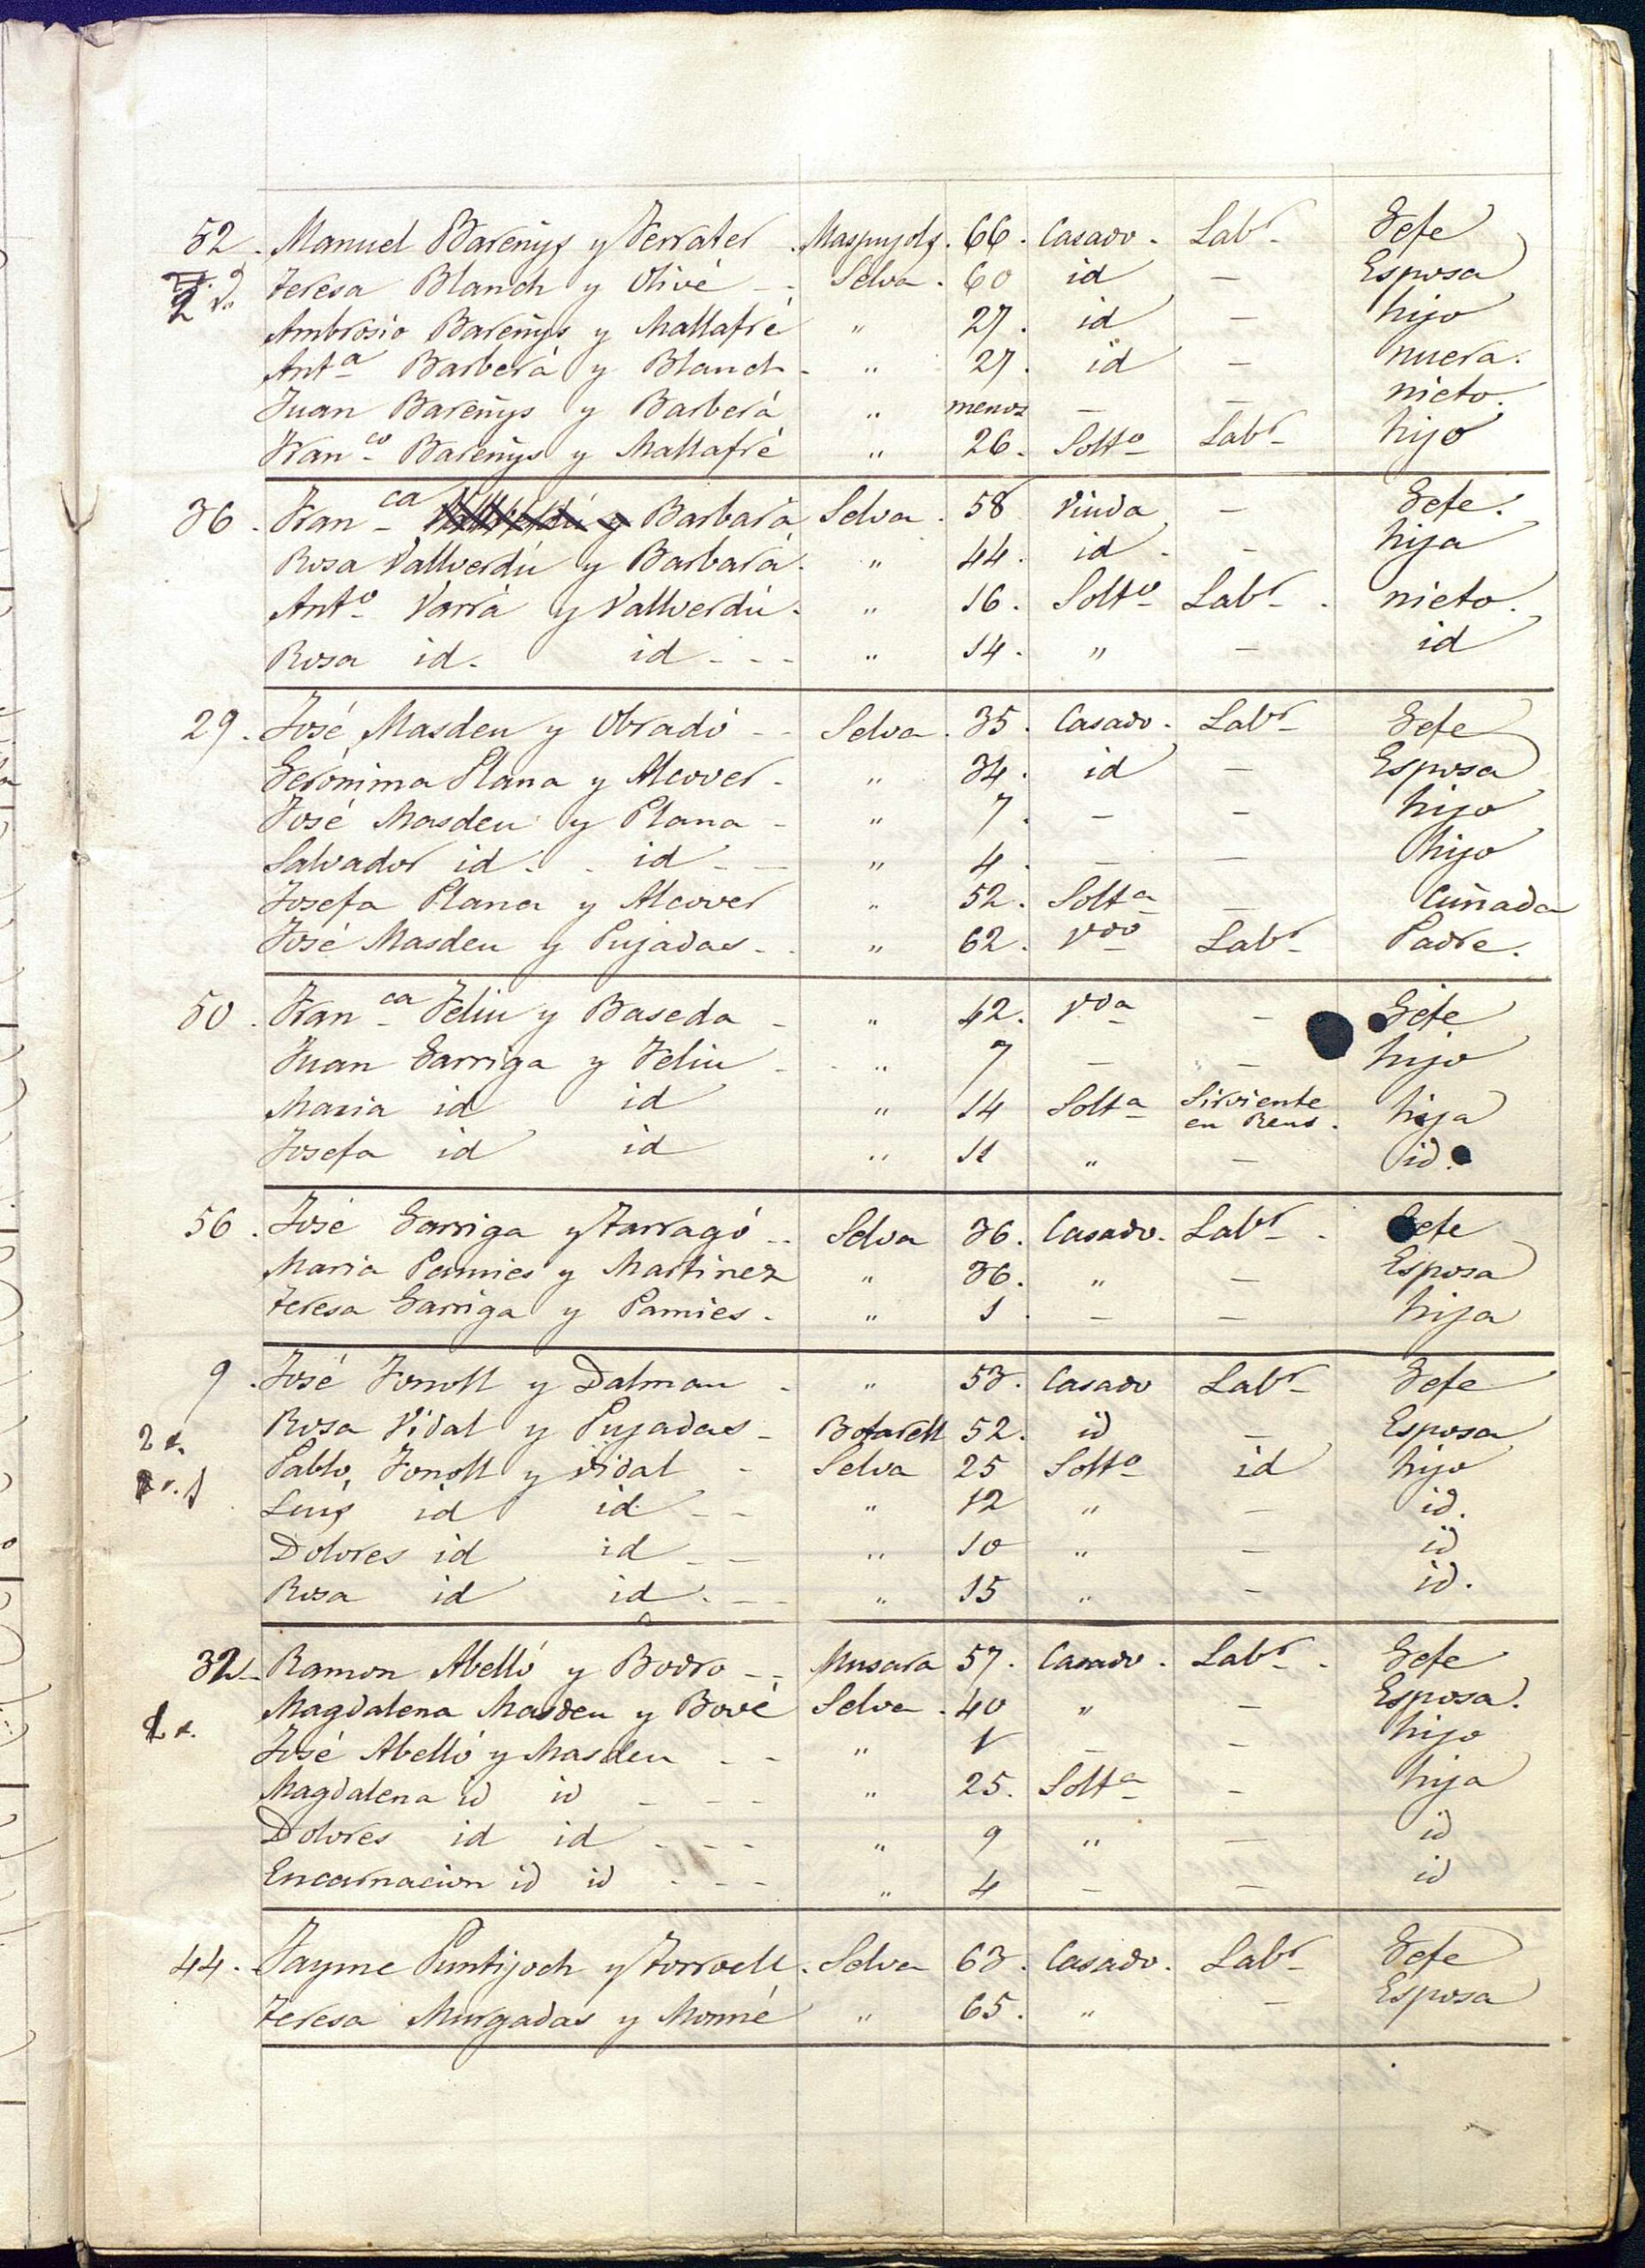 52. Manuel Bareñys y Ferrater. Maspujols. 66. Casado. Labr. Gefe
Teresa Blanch y Olivé -- Selva. 60 id — Esposa
Ambrosio Bareñys y Mallafré " 27. id — hijo
Anta Barberá y Blanch. " 27. id — nuera.
Juan Bareñys y Barberá " menos — — nieto.
Franco Bareñys y Mallafré " 26. Solto Labr hijo
36. Franca y Barbará Selva. 58 Viuda — Gefe.
Rosa Vallverdú y Barbará. " 44. id. — hija
Anto Varrá y Vallverdú. " 16. Solto Labr. nieto.
Rosa id. id --- " 14. " — id
29. José Masdeu y Obradó -- Selva. 35. Casado. Labr Gefe
Gerónima Plana y Alcover. " 34. id — Esposa
José Masdeu y Plana - " 7. — — hijo
Salvador id. id -- " 4. — — hijo
Josefa Plana y Alcover " 52. Solta — Cuñada
José Masdeu y Pujadas -. " 62. Vdo Labr Padre.
50. Franca Feliu y Baseda - " 42. Vda — Gefe
Juan Garriga y Feliu - " 7 — — hijo
Maria id id " 14 Solta Sirviente en Reus. hija
Josefa id id " 11 " — id.
56. José Garriga y Tarragó -- Selva 36. Casado. Labr. Gefe
Maria Pamies y Martinez " 36. " — Esposa
Teresa Garriga y Pamies. " 1. — — hija
9. José Fonoll y Dalmau - " 53. Casado Labr Gefe
Rosa Vidal y Pujadas - Botarell 52. id — Esposa
Pablo Fonoll y Vidal - Selva 25 Solto id hijo
Luis id id -- " 12 " — id.
Dolores id id -- " 10 " — id
Rosa id id. -- " 15 " — id.
32 Ramon Abelló y Bodro -- Musara 57. Casado. Labr. Gefe
Magdalena Masdeu y Bové Selva. 40 " — Esposa.
José Abelló y Masdeu -- " 1 — — hijo
Magdalena id id --- " 25. Solta — hija
Dolores id id --- " 9 " — id
Encarnacion id id --- " 4 — — id
44. Jayme Puntijoch y Torroell. Selva 63. Casado. Labr Gefe
Teresa Murgadas y Monné " 65. " — Esposa